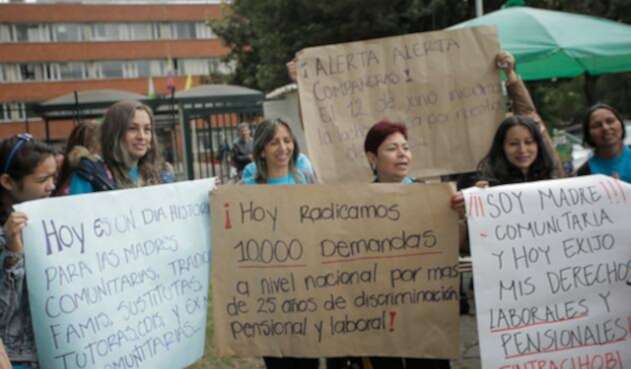 ¡ALERTA ALERTA
COMPAÑERAS!
EL 12 de junio
Hoy ES UN DIA HISTORI
PARA LAS MADRES
COMUNITARIAS,
FAMIS, SUSTITUTAS,
TUTORAS, CDIS Y EX M
COMUNITARIAS.
¡Hoy Radicamos
10.000 Demandas
a nivel nacional por mas
de 25 años de discriminación
Pensional y laboral!
¡¡¡SOY MADRE!!!
COMUNITARIA
Y HOY EXIJO
MIS DERECHOS
LABORALES Y
PENSIONALES!
SINTRACIHOBI